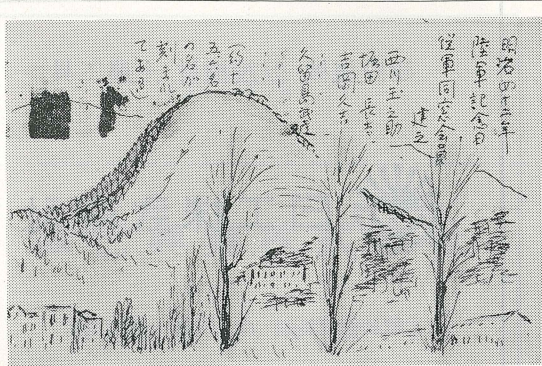 明治四十二年
陸軍記念日
従軍同窓会員
建立
西川玉之助
堀田長吉
吉岡久吉
久留島武彦
約十
五六名
の名が
刻まれ
てある